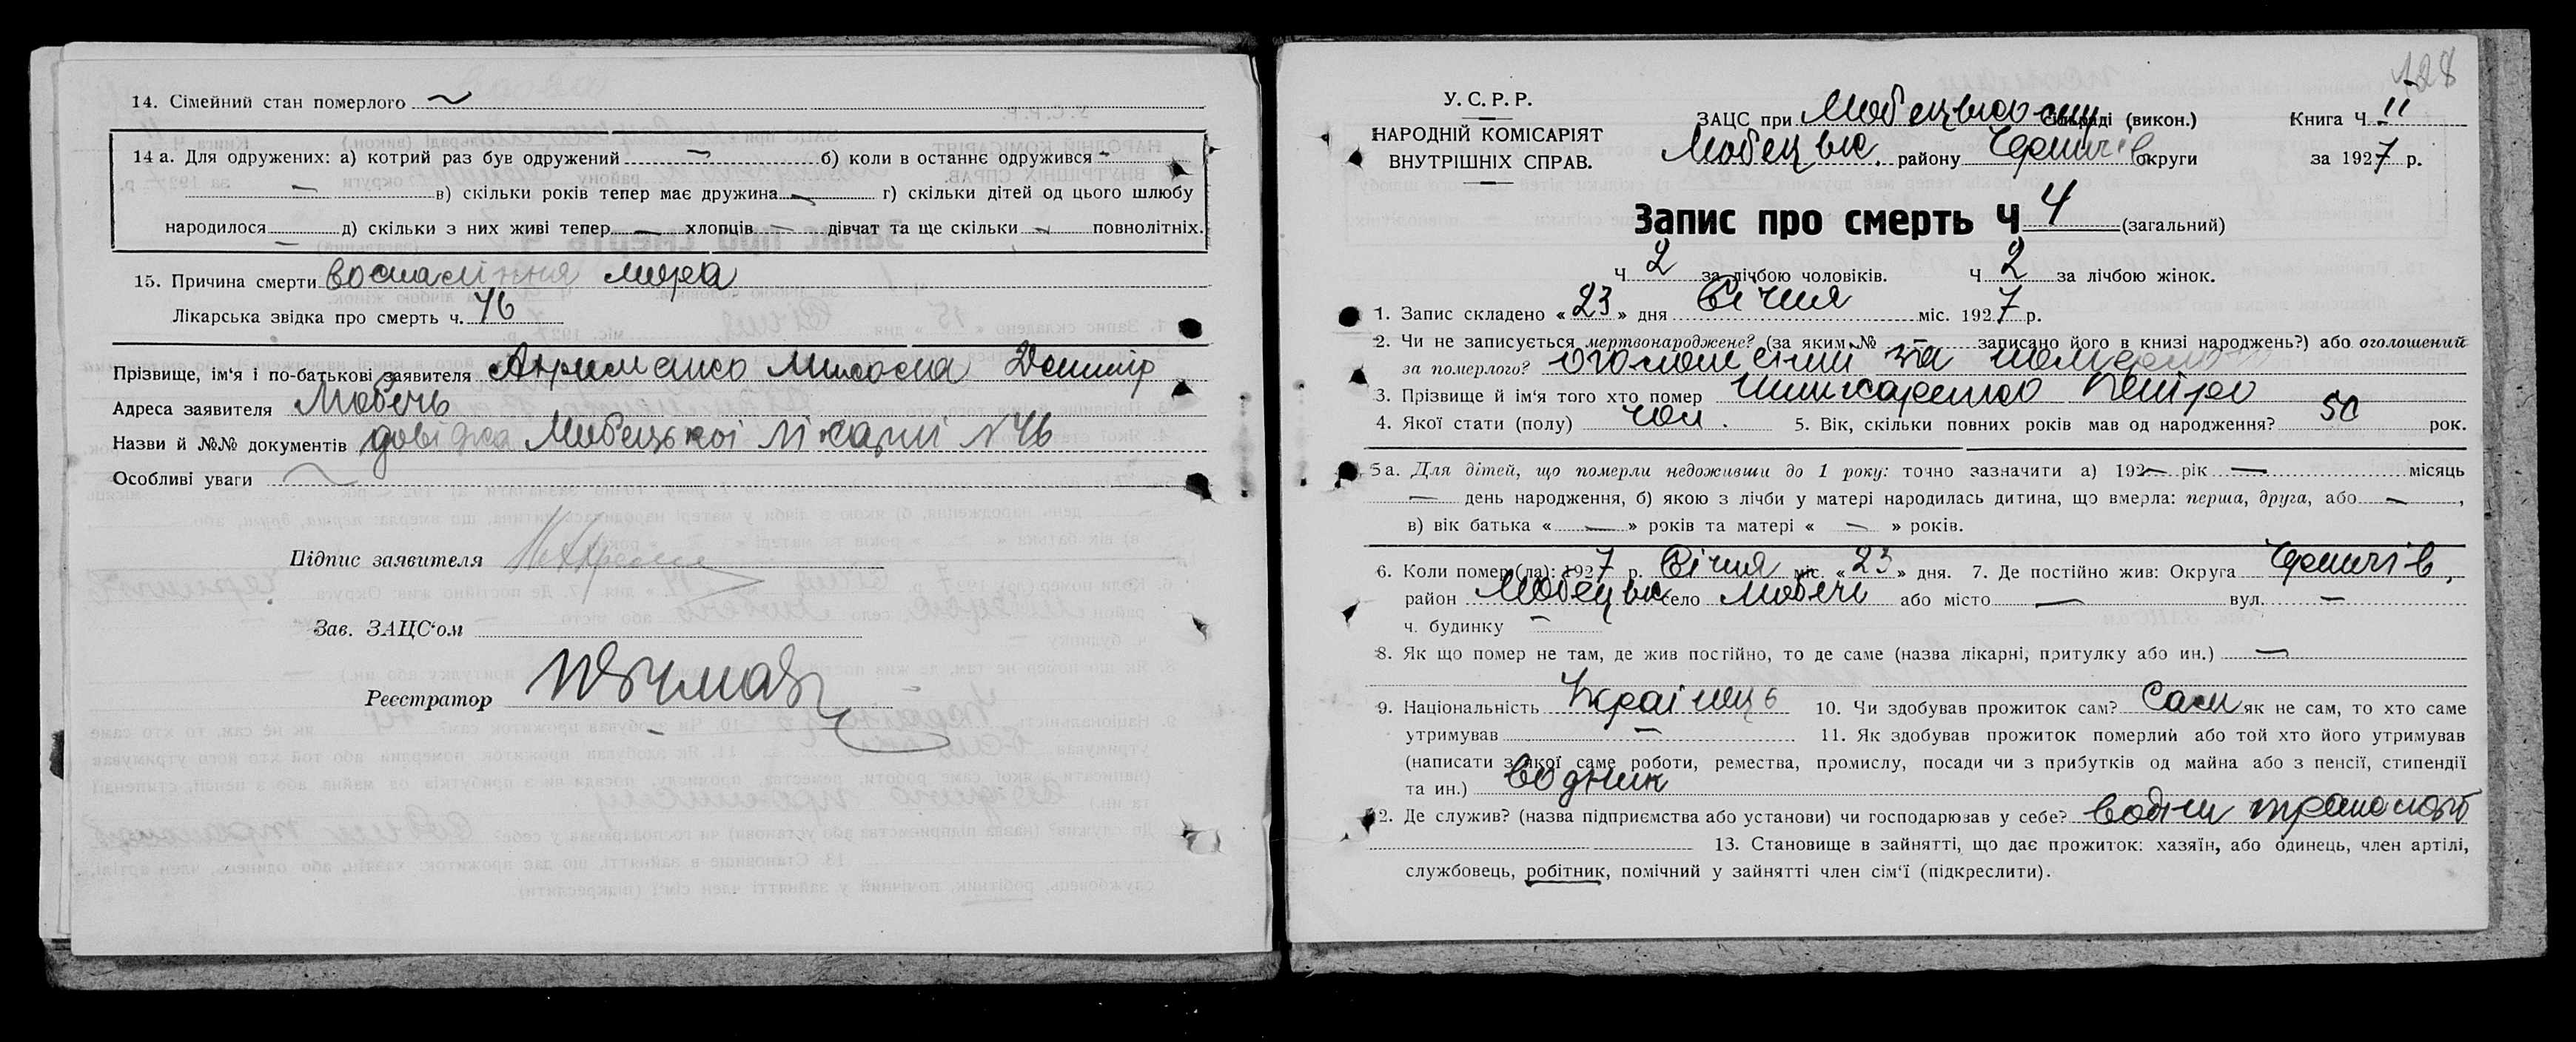 14. Сімейний стан померлого
14 а. Для одружених: а) котрий раз був одружений — б) коли в останнє одружився -
— в) скільки років тепер має дружина — г) скільки дітей од цього шлюбу
народилося — д) скільки з них живі тепер — хлопців — дівчат та ще скільки — повнолітніх.
15. Причина смерти воспаління
Лікарська звідка про смерть ч. 46
Прізвище, ім'я і по-батькові заявителя
Адреса заявителя Любечь
Назви й №№ документів довідка Любецької лікарні №46
Особливі уваги
Підпис заявителя
Зав. ЗАЦС'ом
Реєстратор
128
У. С. Р. Р.
НАРОДНІЙ КОМІСАРІЯТ
ВНУТРІШНІХ СПРАВ.
ЗАЦС при Любецькому сільраді (викон.)
Любецьк. району Черниг округи
Книга Ч. II
за 1927 р.
Запис про смерть Ч 4 (загальний)
Ч 2 за лічбою чоловіків. Ч 2 за лічбою жінок.
1. Запис складено « 23 » дня Січня міс. 1927 р.
2. Чи не записується мертвонароджене? (за яким № — записано його в книзі народжень?) або оголошений
за померлого? оголошений за
3. Прізвище й ім'я того хто помер Петро
4. Якої стати (полу) чол. 5. Вік, скільки повних років мав од народження? 50 рок.
5 а. Для дітей, що померли недоживши до 1 року: точно зазначити а) 192— рік — місяць
— день народження, б) якою з лічби у матері народилась дитина, що вмерла: перша, друга, або —,
в) вік батька « — » років та матері « — » років.
6. Коли помер (ла): 1927 р. Січня міс. « 23 » дня. 7. Де постійно жив: Округа Чернигів,
район Любецьк село Любечь або місто — вул. —
ч. будинку —
8. Як що помер не там, де жив постійно, то де саме (назва лікарні, притулку або ин.) —
9. Національність Українець 10. Чи здобував прожиток сам? Сам як не сам, то хто саме
утримував — 11. Як здобував прожиток померлий або той хто його утримував
(написати з якої саме роботи, ремества, промислу, посади чи з прибутків од майна або з пенсії, стипендії
та ин.) водник
12. Де служив? (назва підприємства або установи) чи господарював у себе? водни транспорт
13. Становище в зайнятті, що дає прожиток: хазяїн, або одинець, член артілі,
службовець, робітник, помічний у зайнятті член сім'ї (підкреслити).